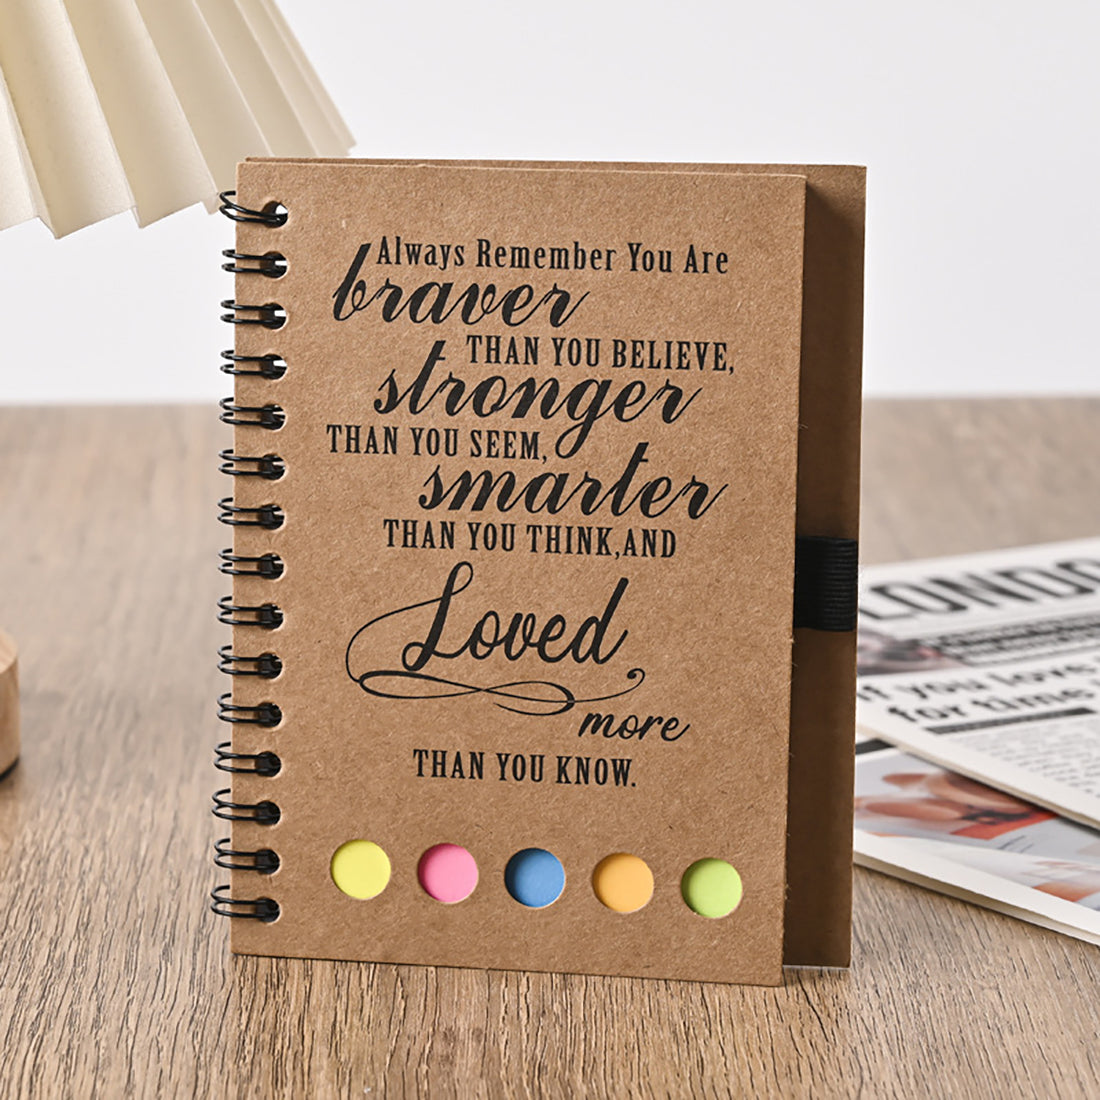 Always Remember You Are
braver
THAN YOU BELIEVE,
stronger
THAN YOU SEEM,
smarter
THAN YOU THINK,AND
Loved
more
THAN YOU KNOW.
LONDO
if you love
for time